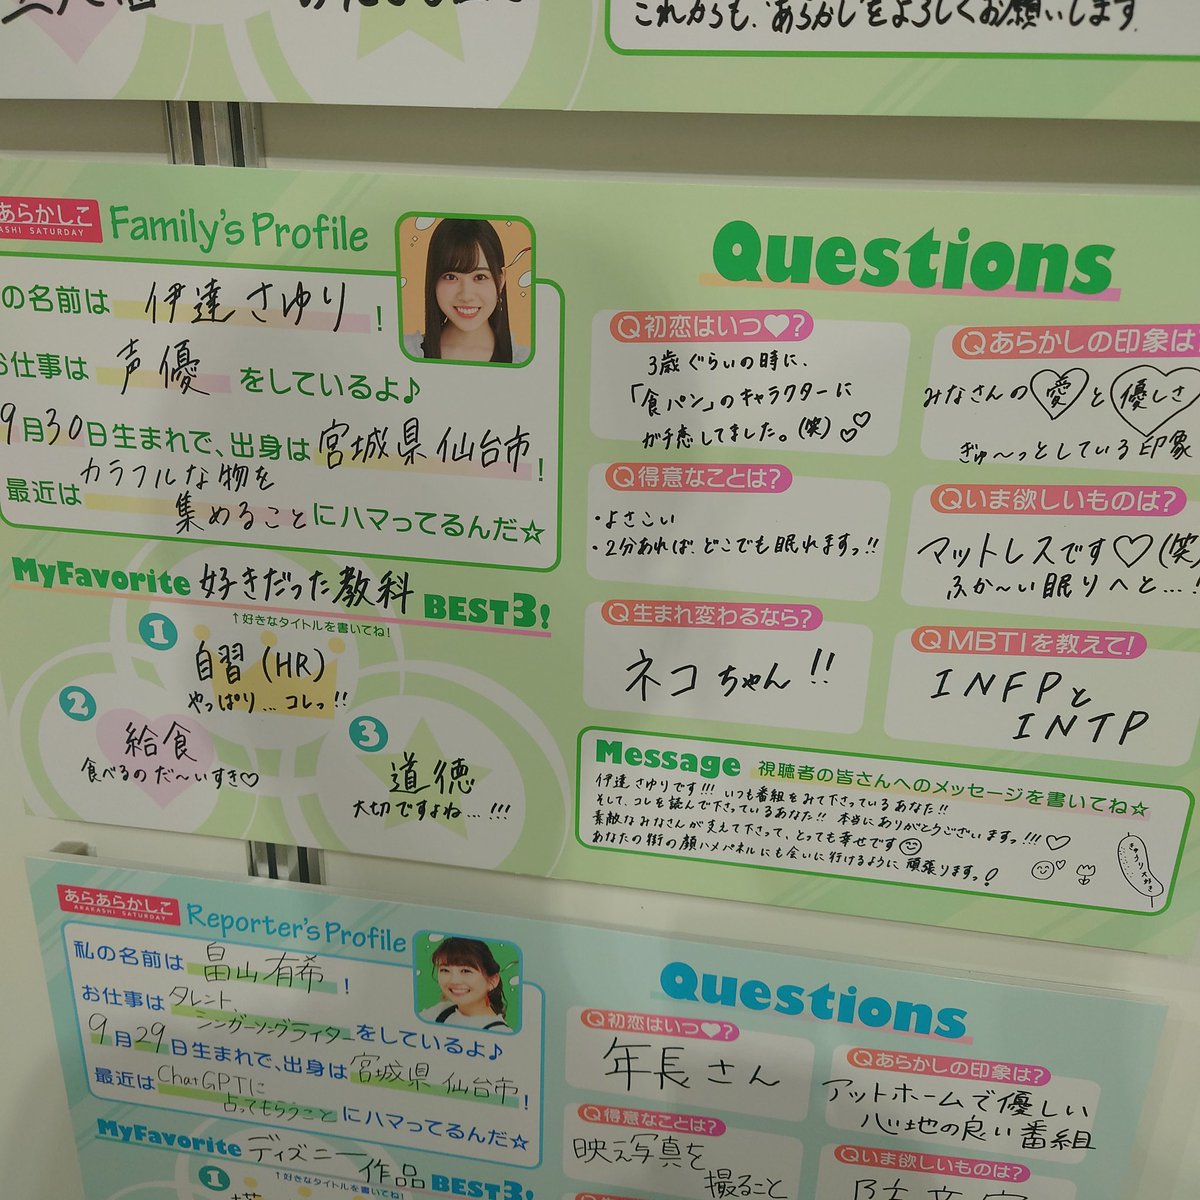 これからも、"あらかし"をよろしくお願いします。
あらかしこ
ASHI SATURDAY
Family's Profile
の名前は 伊達 さゆり !
お仕事は 声優 をしているよ♪
9月30日生まれで、出身は 宮城県 仙台市 !
最近は カラフルな物を
集めること にハマってるんだ☆
MyFavorite 好きだった教科 BEST3!
↑好きなタイトルを書いてね!
1
自習(HR)
やっぱり…コレっ!!
2
給食
食べるの だ〜いすき♡
3
道徳
大切ですよね…!!!
Questions
Q初恋はいつ♥?
3歳ぐらいの時に、
「食パン」のキャラクターに
ガチ恋してました。(笑)♡♡
Qあらかしの印象は?
みなさんの 愛 と 優しさ
ぎゅ〜っとしている印象
Q得意なことは?
・よさこい
・2分あれば、どこでも眠れますっ!!
Qいま欲しいものは?
マットレスです♡(笑)
ふか〜い眠りへと…!
Q生まれ変わるなら?
ネコちゃん!!
QMBTIを教えて!
INFPと
INTP
Message 視聴者の皆さんへのメッセージを書いてね☆
伊達さゆりです!!! いつも番組をみて下さっているあなた!!
そして、コレを読んで下さっているあなた!! 本当にありがとうございますっ!!!♡
素敵なみなさんが支えて下さって、とっても幸せです
あなたの街の顔ハメパネルにも会いに行けるように頑張りますっ!
きゅうり大好き
あらあらかしこ
ARAKASHI SATURDAY
Reporter's Profile
私の名前は 畠山 有希 !
お仕事は タレント
シンガーソングライター をしているよ♪
9月29日生まれで、出身は 宮城県 仙台市 !
最近は ChatGPTに
占ってもらうこと にハマってるんだ☆
MyFavorite ディズニー作品 BEST3!
↑好きなタイトルを書いてね!
1
Questions
Q初恋はいつ♥?
年長さん
Qあらかしの印象は?
アットホームで優しい
心地の良い番組
Q得意なことは?
映え写真を
撮ること
Qいま欲しいものは?